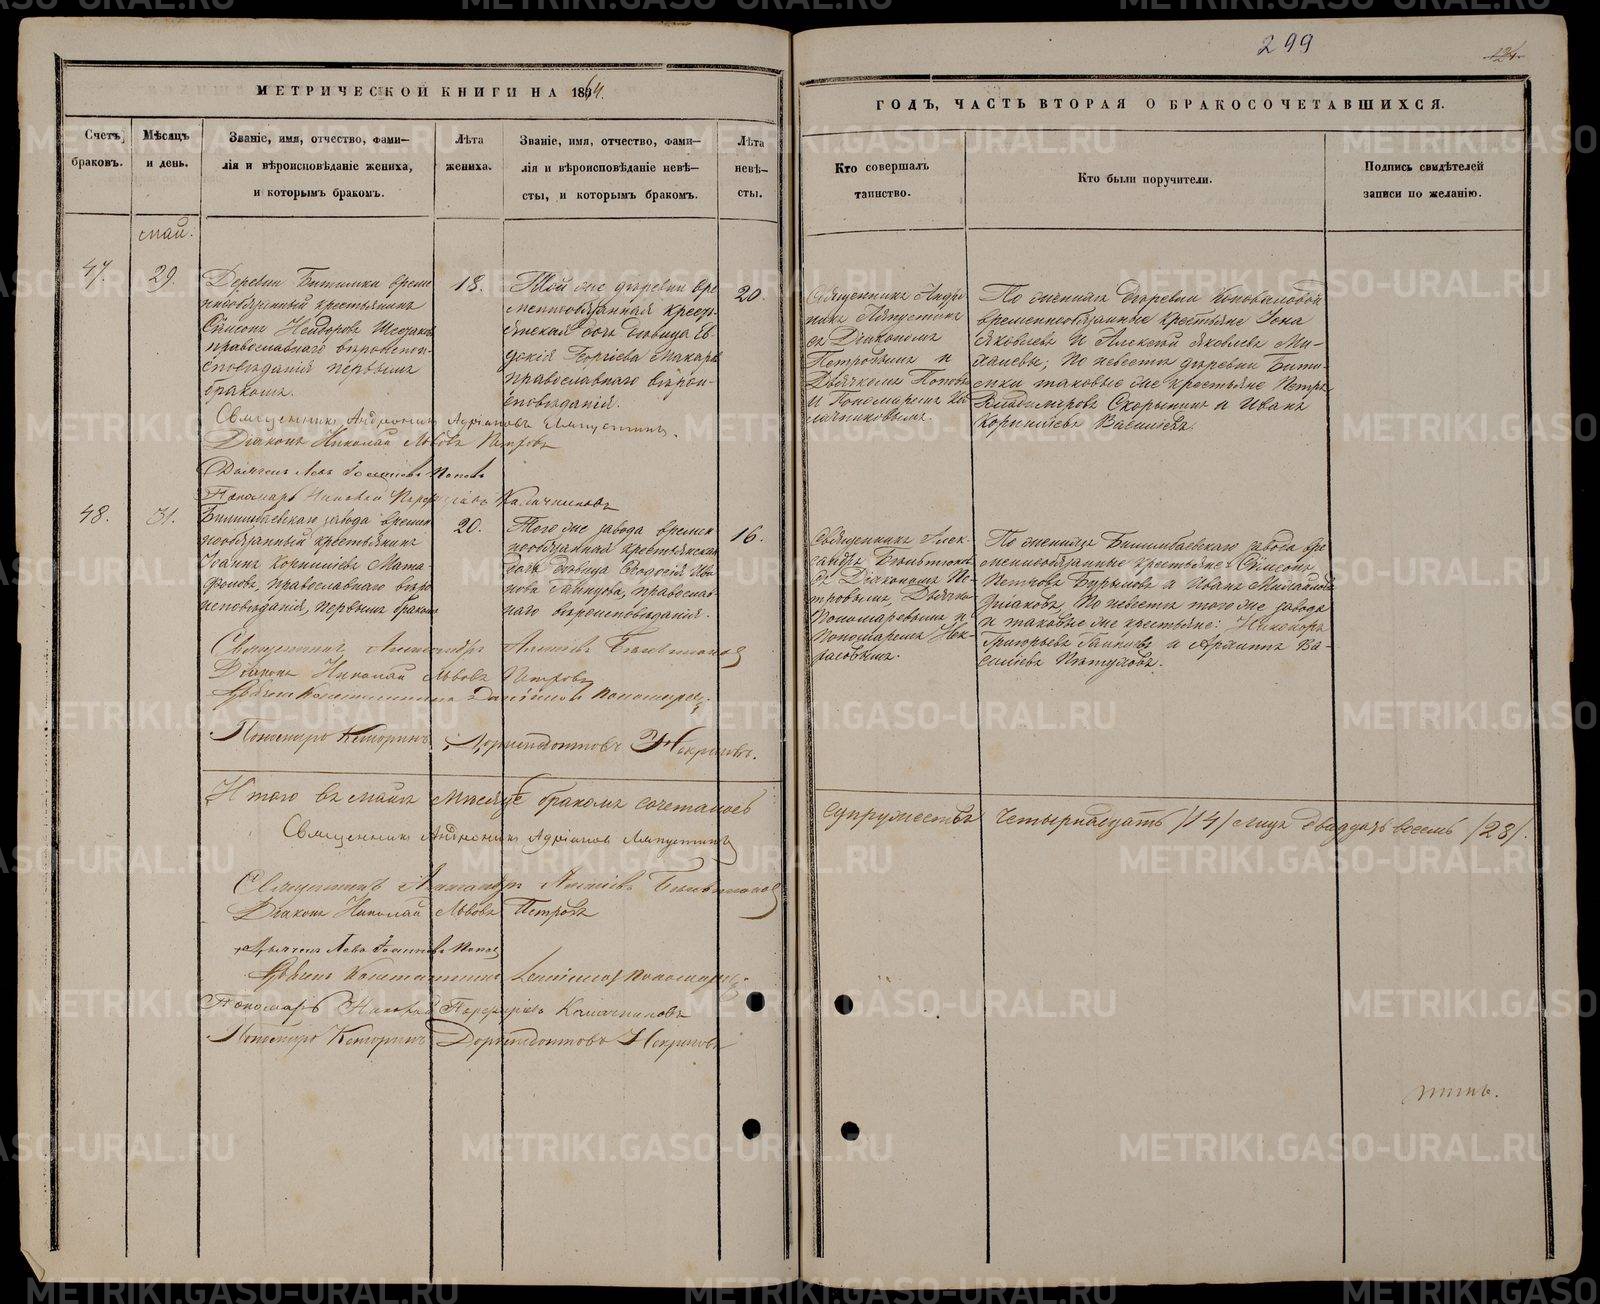 299
124
МЕТРИЧЕСКОЙ КНИГИ НА 1864.
ГОДЪ, ЧАСТЬ ВТОРАЯ О БРАКОСОЧЕТАВШИХСЯ.
Счетъ браковъ.
Мѣсяцъ и день.
Званіе, имя, отчество, фами-
лія и вѣроисповѣданіе жениха,
и которымъ бракомъ.
Лѣта
жениха.
Званіе, имя, отчество, фами-
лія и вѣроисповѣданіе невѣ-
сты, и которымъ бракомъ.
Лѣта
невѣ-
сты.
Кто совершалъ
таинство.
Кто были поручители.
Подпись свидѣтелей
записи по желанію.
май.
47.
29.
Деревни Битимки време
ннообязанный крестьянинъ
Самсонъ
православнаго вѣроиспо-
вѣданія первымъ
бракомъ.
18.
Той же деревни вре
меннообязанная кресть
янская дочь девица Ев
докія Георгіева Макаро
православнаго вѣрои-
сповѣданія.
20.
Священникъ Андро
никъ Ляпустинъ
съ Діакономъ
Петровымъ и
Дьячкомъ Поповы
и Пономаремъ Ка
лачниковымъ.
По женихѣ деревни Коноваловой
временнообязанные крестьяне
Яковлевъ и Алексѣй Яковлевъ Ми-
халевы; по невестѣ деревни Бити-
мки таковые же крестьяне Петръ
Владиміровъ Скорынинъ и Иванъ
Корниловъ Васильевъ.
Священникъ Андроникъ Адріановъ Ляпустинъ.
Діаконъ Николай Львовъ Петровъ
Дьячекъ Левъ Іоанновъ Поповъ
Пономарь Николай Порфиріевъ Калачниковъ
48.
31.
Билимбаевскаго завода времен
нообязанный крестьянинъ
Іоаннъ Корниліевъ Мата
фоновъ, православнаго вѣро
исповѣданія, первымъ бракомъ
20.
Того же завода времен
нообязанная крестьянская
дочь девица Ѳеодосія Ива
нова Гаинцова, православ-
наго вѣроисповѣданія.
16.
Священникъ Алек-
сандръ
съ Діакономъ Пе-
тровымъ, Дьячко
Пономаревымъ и
Пономаремъ Нек-
расовымъ.
По женихѣ Билимбаевскаго завода вре
меннообязанные крестьяне: Симеонъ
Петровъ Бурымовъ и Иванъ Михайловъ
по невестѣ того же завода
и таковые же крестьяне: Никаноръ
Григорьевъ и Ва-
сильевъ Пѣтуховъ.
Священникъ Александръ Алексѣевъ
Діаконъ Николай Львовъ Петровъ
Дьячекъ Константинъ Даніиловъ Пономаревъ.
Пономарь Доримедонтовъ Некрасовъ.
Итого въ маѣ мѣсяцѣ бракомъ сочеталось
супружествъ четырнадцать /14/ лицъ двадцать восемь /28/.
Священникъ Андроникъ Адріановъ Ляпустинъ
Священникъ Александръ Алексѣевъ
Діаконъ Николай Львовъ Петровъ
Дьячекъ Левъ Іоанновъ Поповъ
Дьячекъ Константинъ Даніиловъ Пономаревъ
Пономарь Николай Порфиріевъ Калачниковъ
Пономарь Доримедонтовъ Некрасовъ
METRIKI.GASO-URAL.RU